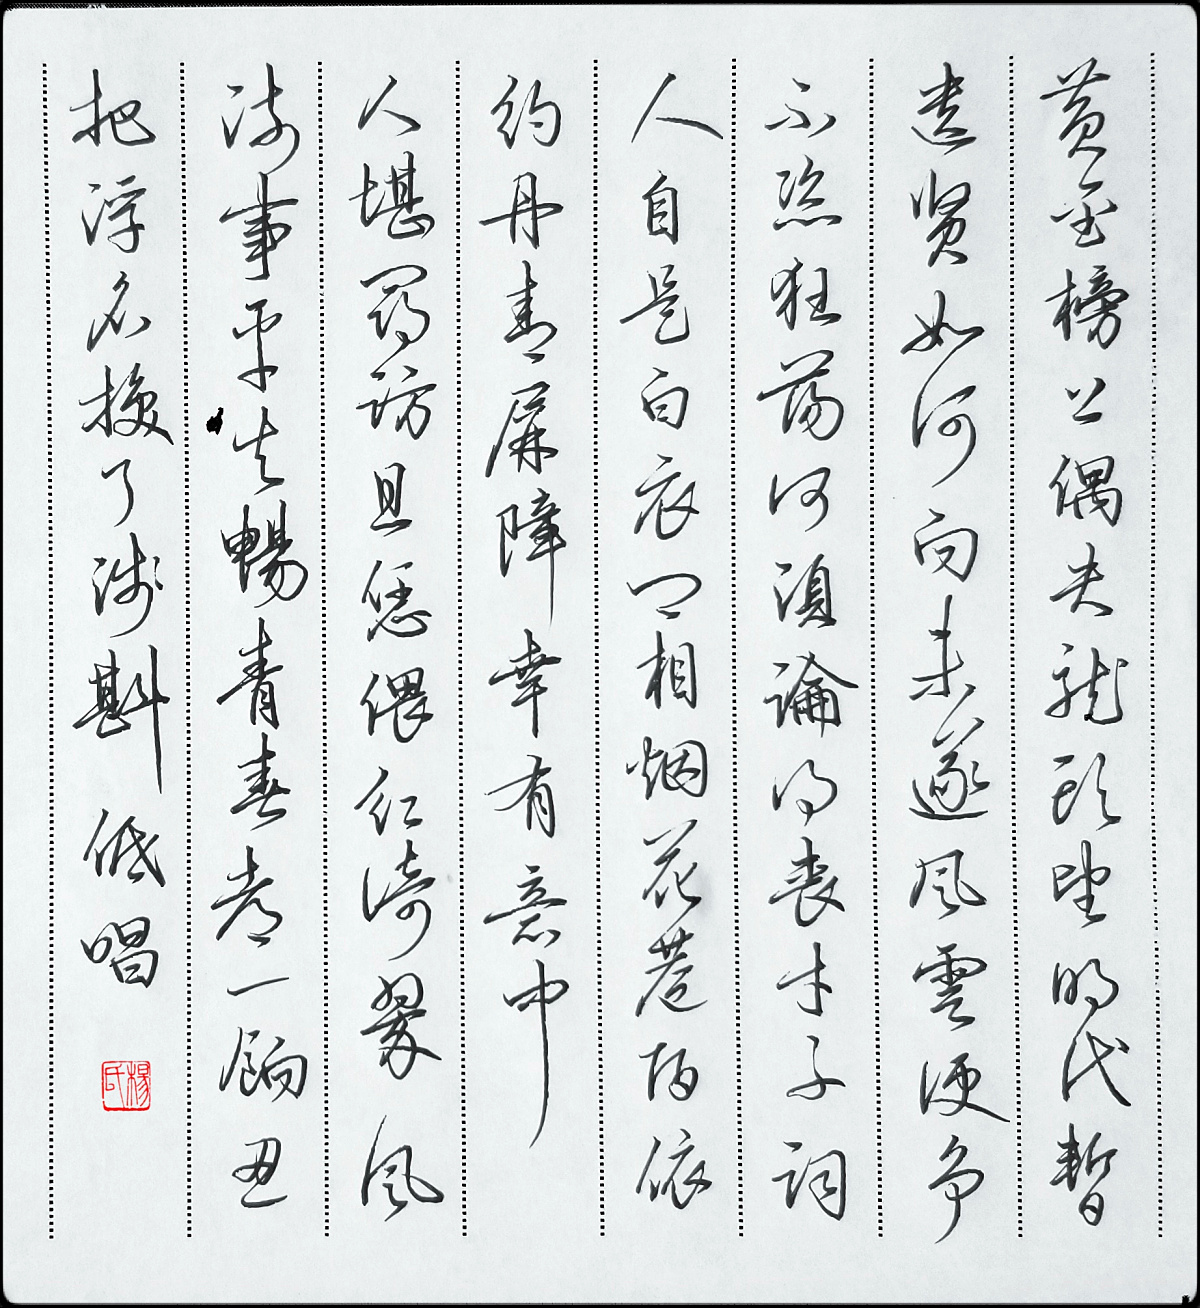 黄金榜上偶失龙头望明代暂
遗贤如何向未遂风雲便争
不恣狂荡何須論得丧才子词
人自是白衣卿相烟花巷陌依
约丹青屏障幸有意中
人堪寻访且恁偎红倚翠风
流事平生暢青春都一餉忍
把浮名换了浅斟低唱
楊氏